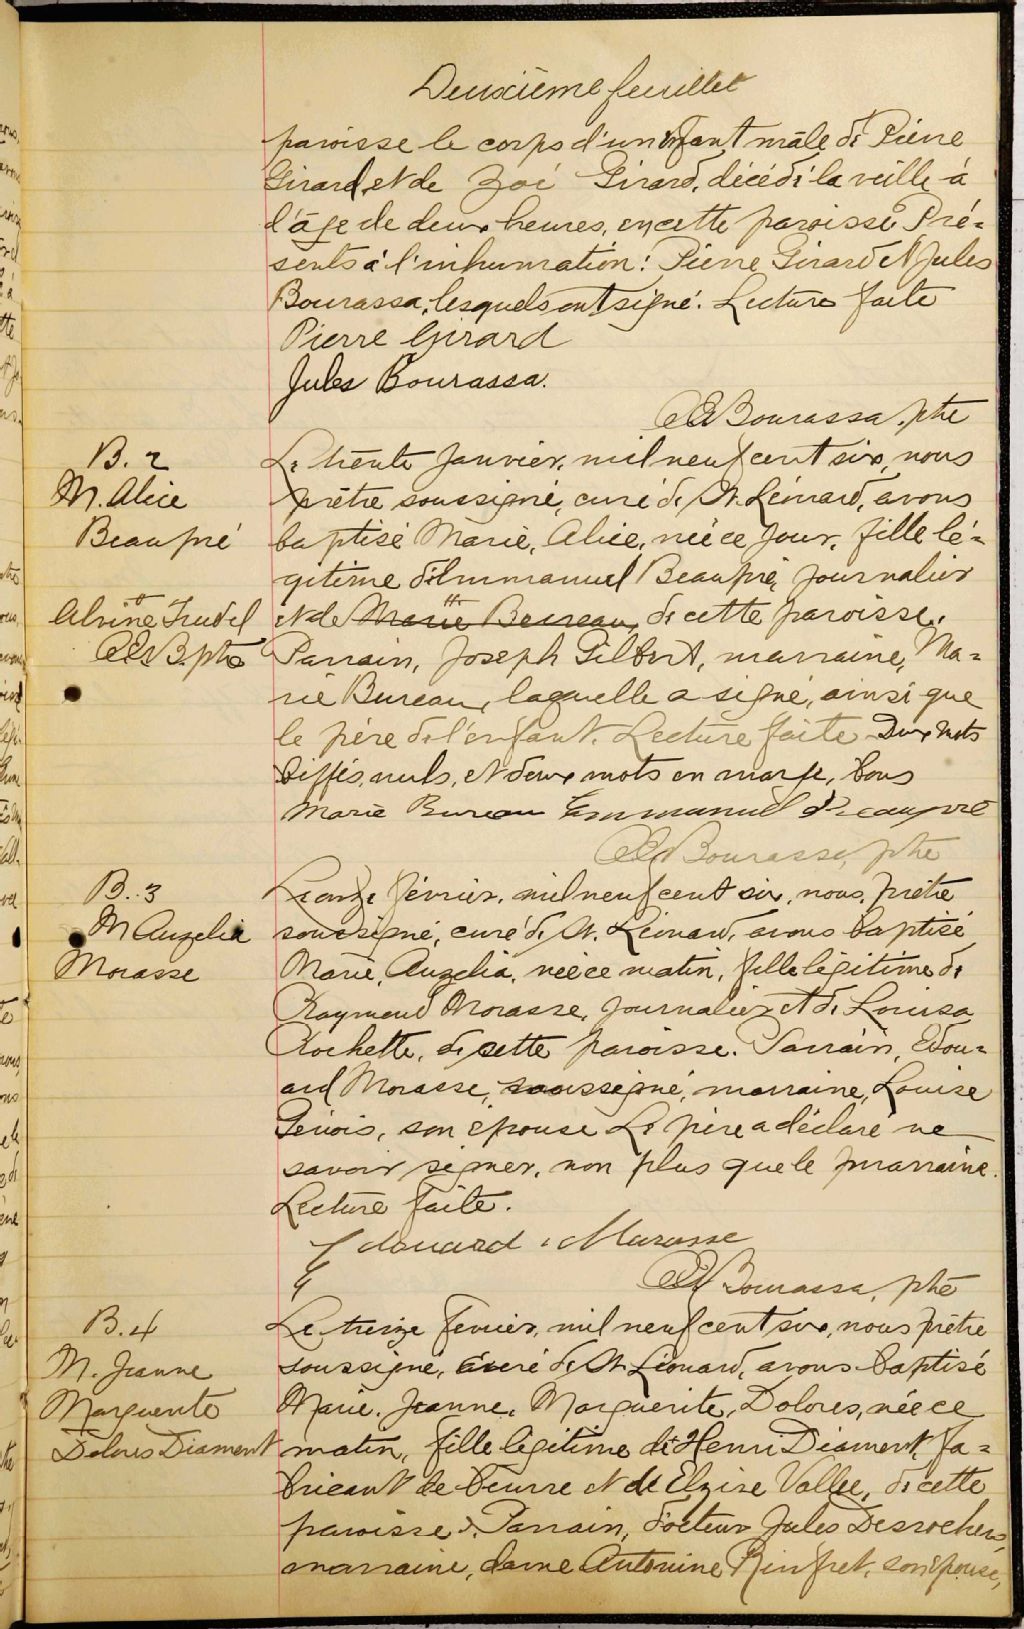 Deuxième feuillet
paroisse le corps d'un enfant mâle de Pierre
Girard, et de Zoé Girard, décédé la veille à
l'âge de deux heures, en cette paroisse. Pré-
sents à l'inhumation: Pierre Girard et Jules
Bourassa, lesquels ont signé. Lecture faite
Pierre Girard
Jules Bourassa.
Bourassa, ptre
B. 2
M. Alice
Beaupré
Le trente Janvier, mil neuf cent six, nous
prêtre soussigné, curé de St. Léonard, avons
baptisé Marie, Alice, née ce jour, fille lé-
gitime d'Emmanuel Beaupré, journalier
et de Marie Bureau, de cette paroisse.
Alvine Trudel
Parrain, Joseph Gilbert, marraine, Ma-
rie Bureau, laquelle a signé, ainsi que
le père de l'enfant. Lecture faite Deux mots
biffés nuls, et deux mots en marge, bons
Marie Bureau Emmanuel Beaupré
Bourassa, ptre
B. 3
M Auzelia
Morasse
Le onze février, mil neuf cent six, nous, prêtre
soussigné, curé de St. Léonard, avons baptisé
Marie, Auzelia, née ce matin, fille légitime de
Raymond Morasse, journalier et de Louisa
Rochette, de cette paroisse. Parrain, Edou-
ard Morasse, soussigné, marraine, Louise
Génois, son épouse Le père a déclaré ne
savoir signer, non plus que le marraine.
Lecture faite.
Edouard Marasse
Bourassa, ptre
B. 4
M. Jeanne
Marguerite
Dolores Diament
Le treize février, mil neuf cent six, nous prêtre
soussigné, curé de St. Léonard, avons baptisé
Marie, Jeanne, Marguerite, Dolores, née ce
matin, fille légitime de Henri Diament, fa-
bricant de beurre et de Elzire Vallee, de cette
paroisse. Parrain, docteur Jules Desrochers,
marraine, dame Antonine Rinfret, son épouse,